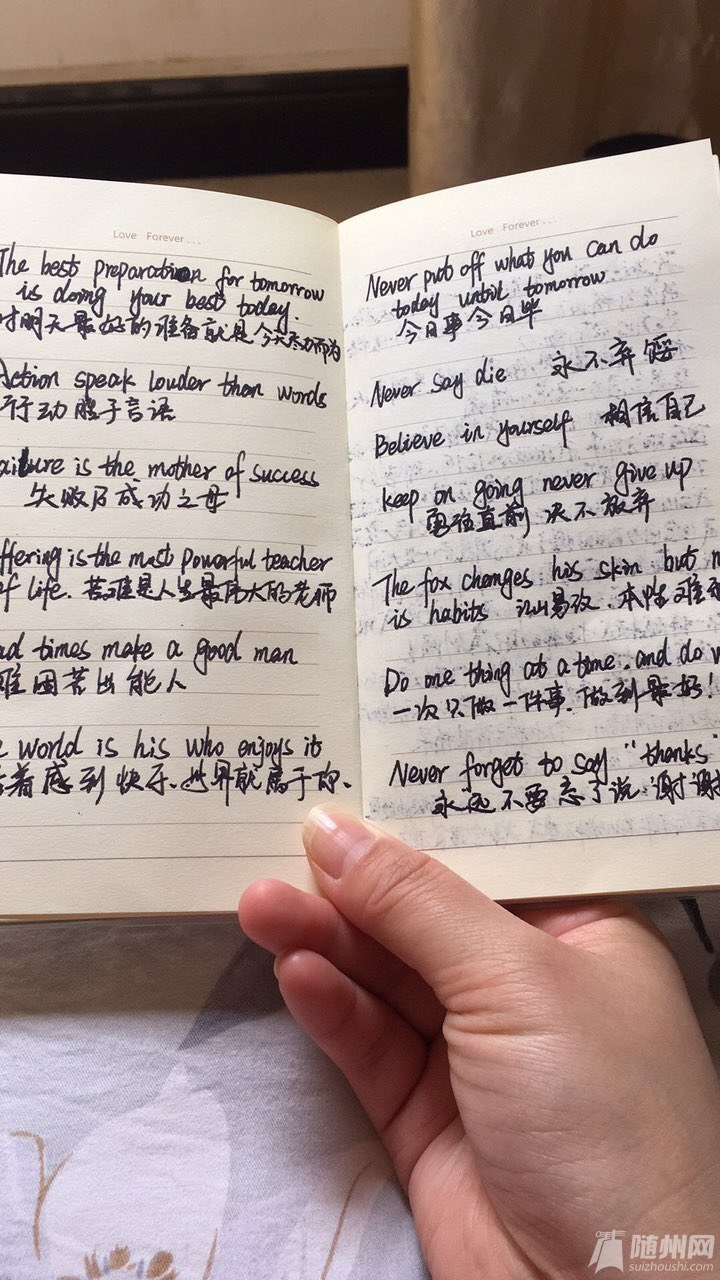 Love Forever...
The best preparation for tomorrow
is doing your best today.
对明天最好的准备就是今天尽力而为
Action speak louder than words
行动胜于言语
ailure is the mother of success
失败乃成功之母
ffering is the most powerful teacher
of life. 苦难是人生最伟大的老师
ad times make a good man
难困苦出能人
world is his who enjoys it
着感到快乐、世界就属于你、
Love Forever...
Never put off what you can do
today until tomorrow
今日事今日毕
Never say die 永不弃馁
Believe in yourself 相信自己
keep on going never give up
勇往直前 决不放弃
The fox changes his skin but n
is habits 江山易改.本性难
Do one thing at a time, and do w
一次只做一件事、做到最好!
Never forget to say "thanks"
永远不要忘了说 谢谢
随州网
suizhoushi.com